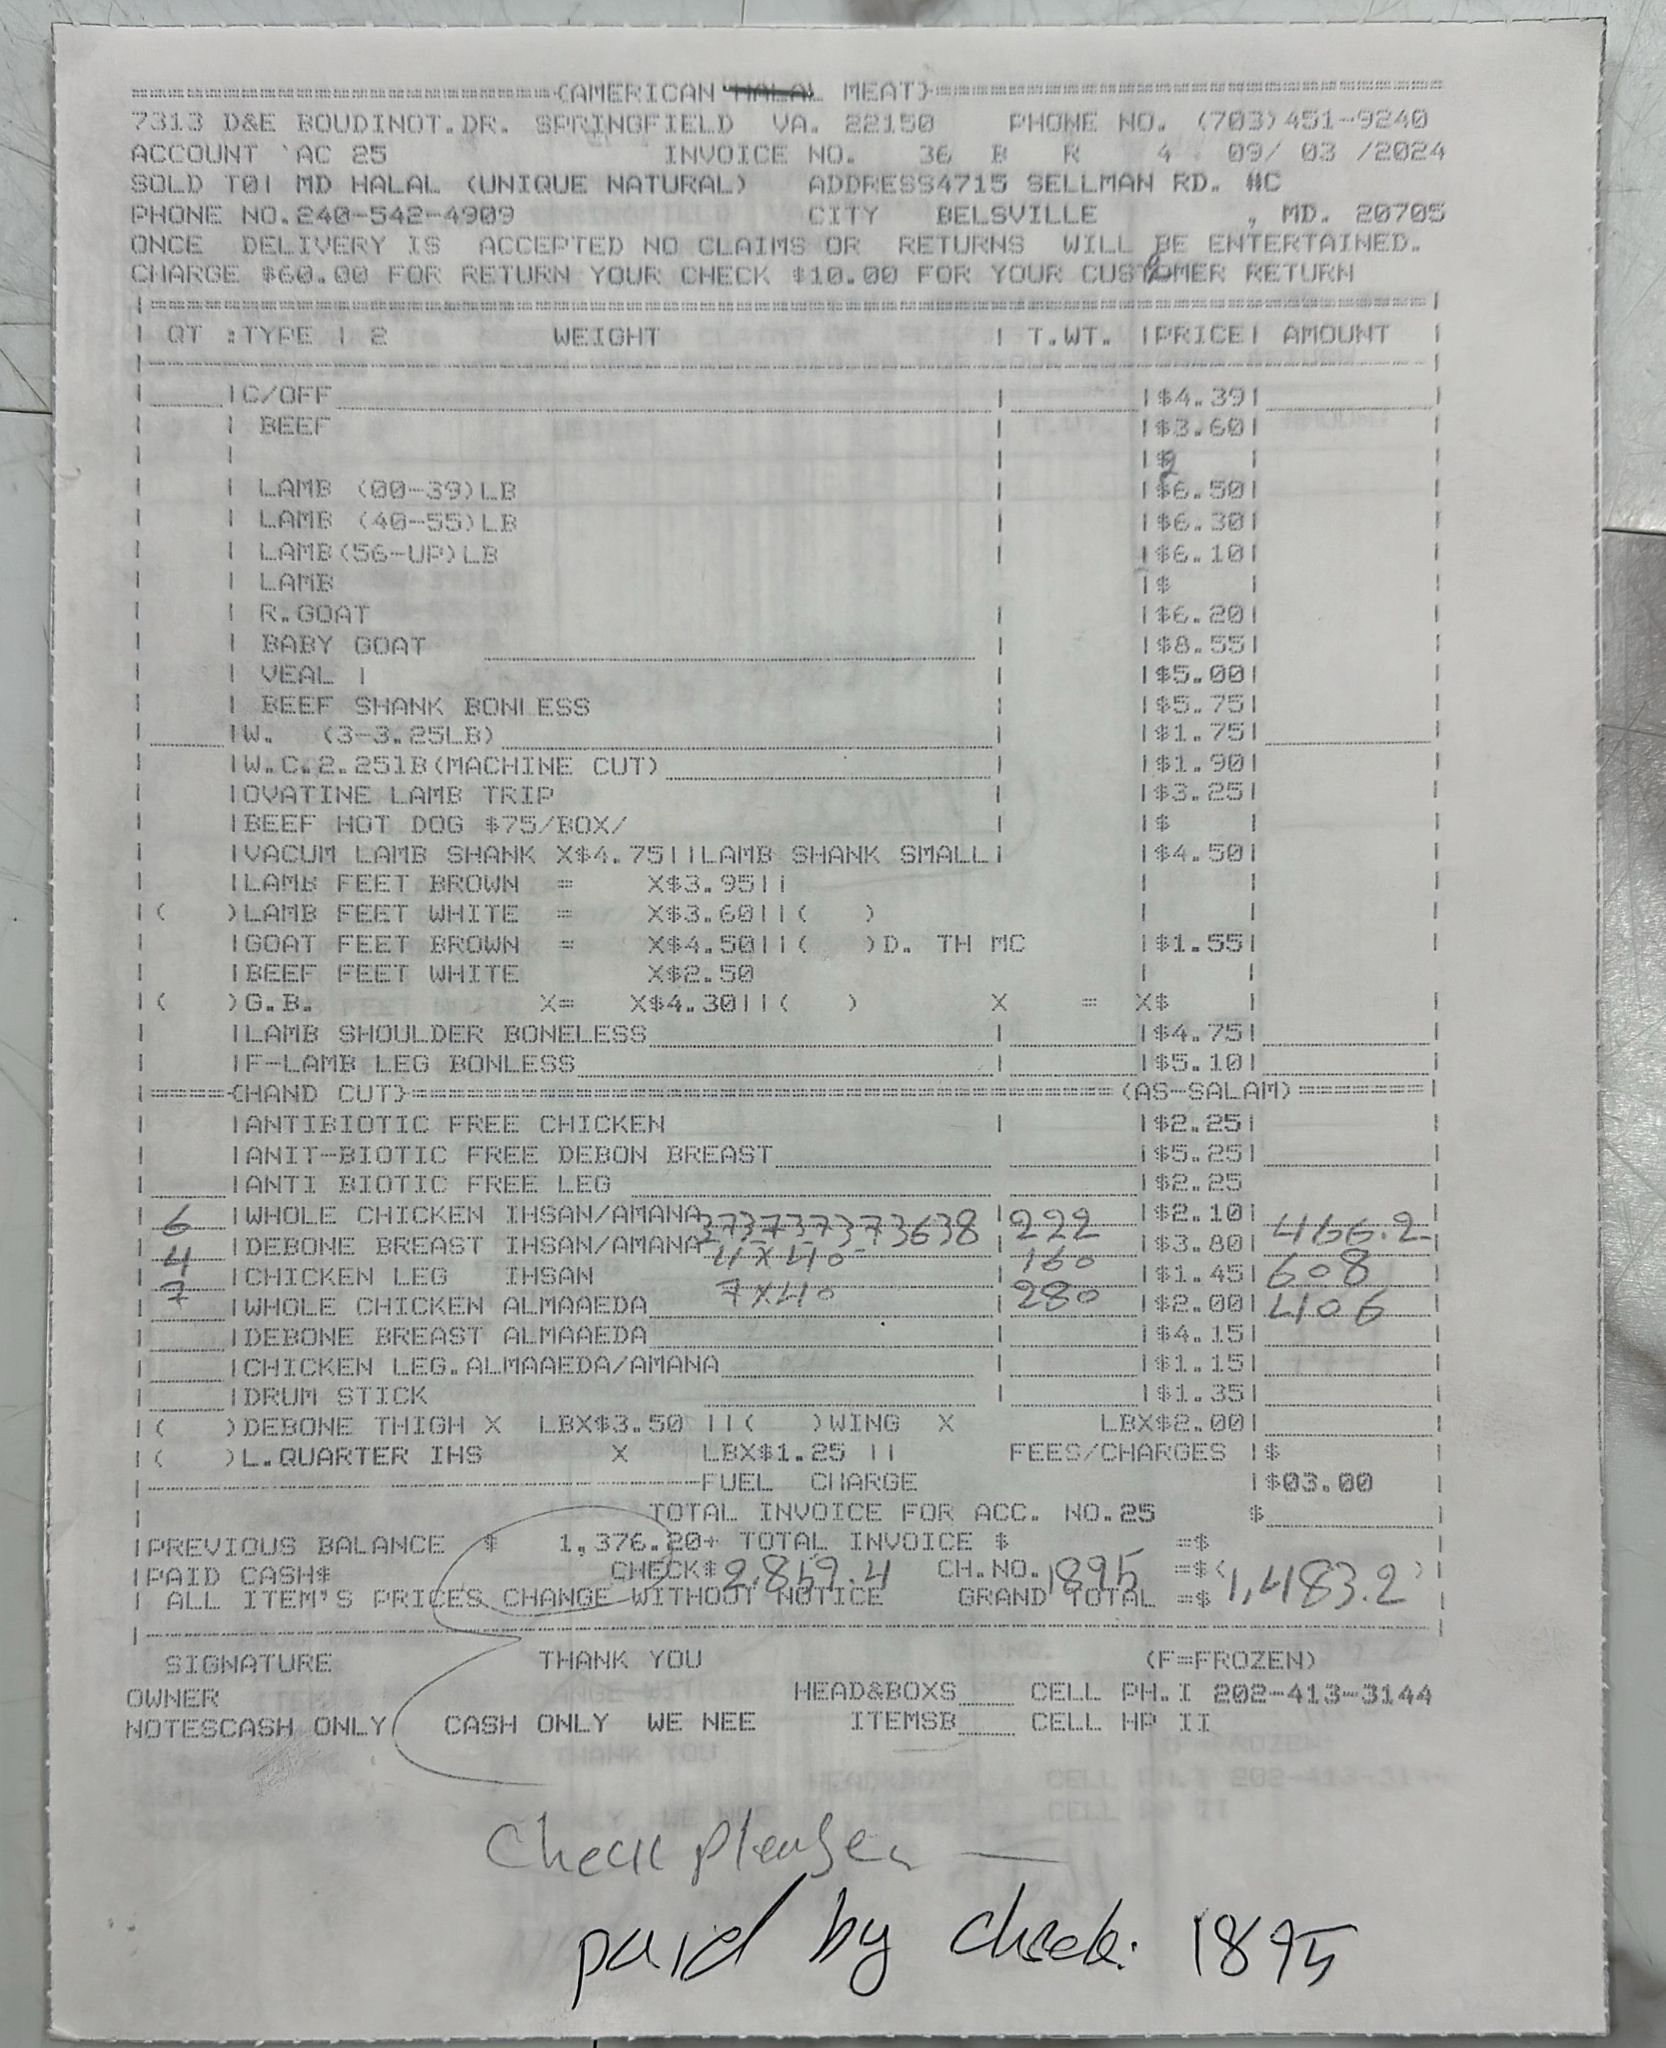 (AMERICAN HALAL MEAT)
7313 D&E BOUDINOT.DR. SPRINGFIELD VA. 22150 PHONE NO. (703)451-9240
ACCOUNT 'AC 25 INVOICE NO. 36 B R 4 09/ 03 /2024
SOLD TO| MD HALAL (UNIQUE NATURAL) ADDRESS4715 SELLMAN RD. #C
PHONE NO.240-542-4909 CITY BELSVILLE , MD. 20705
ONCE DELIVERY IS ACCEPTED NO CLAIMS OR RETURNS WILL BE ENTERTAINED.
CHARGE $60.00 FOR RETURN YOUR CHECK $10.00 FOR YOUR CUSTOMER RETURN
| QT :TYPE | 2 WEIGHT | T.WT. |PRICE| AMOUNT |
|C/OFF | |$4.39|
| BEEF | |$3.60|
| | |$ |
| LAMB (00-39)LB | |$6.50|
| LAMB (40-55)LB | |$6.30|
| LAMB(56-UP)LB | |$6.10|
| LAMB |$ |
| R.GOAT | |$6.20|
| BABY GOAT | |$8.55|
| VEAL | |$5.00|
| BEEF SHANK BONLESS |$5.75|
|W. (3-3.25LB) | |$1.75|
|W.C.2.25lB(MACHINE CUT) | |$1.90|
|OVATINE LAMB TRIP | |$3.25|
|BEEF HOT DOG $75/BOX/ | |$ |
|VACUM LAMB SHANK X$4.75||LAMB SHANK SMALL| |$4.50|
|LAMB FEET BROWN = X$3.95|| | |
|( )LAMB FEET WHITE = X$3.60||( ) | |
|GOAT FEET BROWN = X$4.50||( )D. TH MC |$1.55|
|BEEF FEET WHITE X$2.50 | |
|( )G.B. X= X$4.30||( ) X = X$ |
|LAMB SHOULDER BONELESS | |$4.75|
|F-LAMB LEG BONLESS | |$5.10|
|=====(HAND CUT)=====(AS-SALAM)=======|
|ANTIBIOTIC FREE CHICKEN | |$2.25|
|ANIT-BIOTIC FREE DEBON BREAST |$5.25|
|ANTI BIOTIC FREE LEG |$2.25
6 |WHOLE CHICKEN IHSAN/AMANA 373737373638 |222 |$2.10| 466.2
4 |DEBONE BREAST IHSAN/AMANA 4x40 | 160 |$3.80| 608
7 |CHICKEN LEG IHSAN 7x40 | 280 |$1.45| 406
|WHOLE CHICKEN ALMAAEDA | |$2.00|
|DEBONE BREAST ALMAAEDA | |$4.15|
|CHICKEN LEG.ALMAAEDA/AMANA | |$1.15|
|DRUM STICK | |$1.35|
|( )DEBONE THIGH X LBX$3.50 ||( )WING X LBX$2.00|
|( )L.QUARTER IHS X LBX$1.25 || FEES/CHARGES |$
FUEL CHARGE |$03.00
TOTAL INVOICE FOR ACC. NO.25 $
|PREVIOUS BALANCE $ 1,376.20+ TOTAL INVOICE $ =$
|PAID CASH$ CHECK$ 2,859.4 CH.NO. 1895 =$( )
| ALL ITEM'S PRICES CHANGE WITHOUT NOTICE GRAND TOTAL =$ 1,483.2
SIGNATURE THANK YOU (F=FROZEN)
OWNER HEAD&BOXS CELL PH.I 202-413-3144
NOTESCASH ONLY CASH ONLY WE NEE ITEMSB CELL HP II
Check please
paid by check: 1895